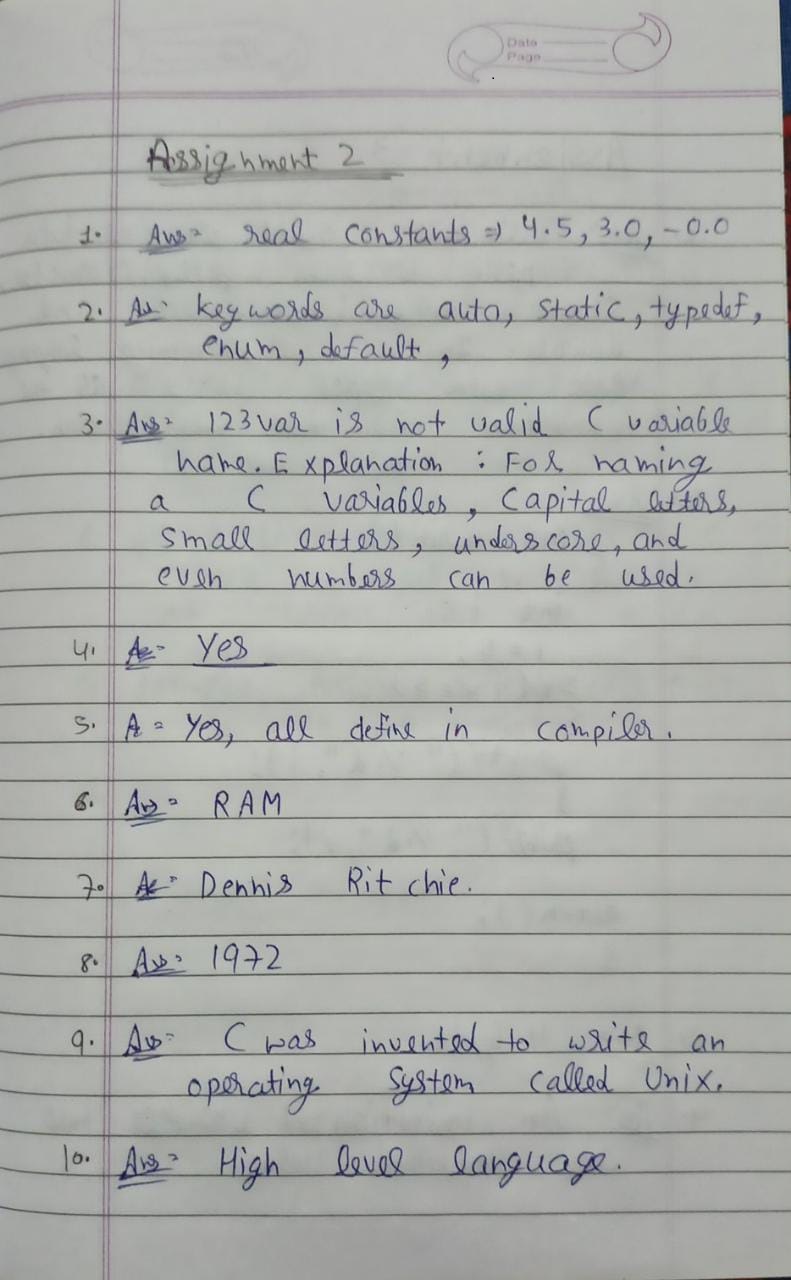 Date
Page
Assignment 2
1. Ans= real constants => 4.5, 3.0, -0.0
2. As. keywords are auto, static, typedef,
enum, default,
3. Ans= 123var is not valid C variable
name. Explanation : For naming
a C variables, Capital letters,
small letters, underscore, and
even numbers can be used.
4. A= Yes
5. A= Yes, all define in compiler.
6. Ans= RAM
7. A= Dennis Ritchie.
8. Ans= 1972
9. Ans= C was invented to write an
operating system called Unix.
10. Ans= High level language.